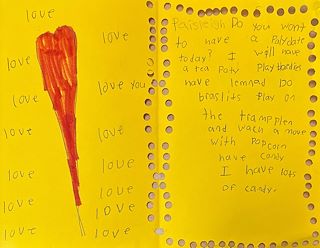 love
love
love
love
love
love you
love
love
love
love
love
love
love
love
love
love
love
Parisleigh Do you wont
to have a Polydate
today? I will have
a tea Poty Play barbies
have lemnad Do
braslits Play on
the trampplen
and wach a move
with Popcorn
have candy
I have lots
of candy.